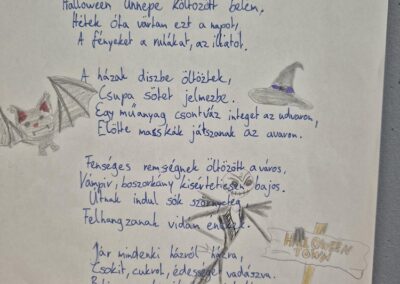 Halloween Ünnepe költözött belém,
Hetek óta vártam ezt a napot,
A fényeket a ruhákat, az illatot.
A házak díszbe öltöztek,
Csupa sötét jelmezbe.
Egy műanyag csontváz integet az udvaron,
Előtte maszkák játszanak az avaron.
Fenséges rémségnek öltözött a város,
Vámpír, boszorkány kísértetiesen bájos.
Útnak indul sok szörnyeteg
Felhangzanak vidám énekek.
HALLOWEEN
TOWN
Jár mindenki házról házra,
Csokit, cukrot, édességet vadászva.